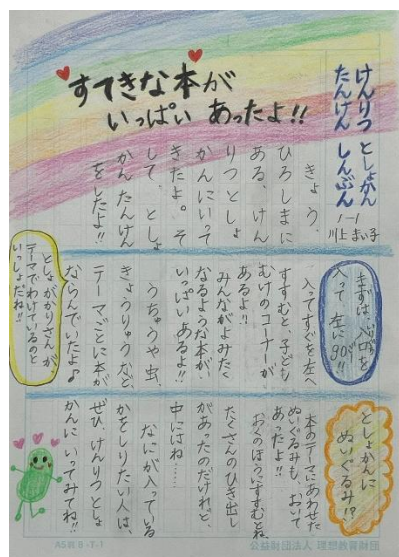 けんりつ としょかん
たんけん しんぶん
1-1
川上 まい子
すてきな本が
いっぱい あったよ!!
きょう、
ひろしまに
ある、けん
りつ としょ
かんにいって
きたよ。そ
して、としょ
かん たんけん
をしたよ!!
まずは、いりぐちを
入って 左に90°!!
入ってすぐを左へ
すすむと、子ども
むけのコーナーが
あるよ!!
みんながよみたく
なるような本がい
いっぱいあるよ!!
うちゅうや虫、
きょうりゅうなど、
テーマごとに本が
ならんでいたよ♪
としょがかりさんが
テーマでわけているのと
いっしょだね!!
としょかんに
ぬいぐるみ!?
本のテーマにあわせた
ぬいぐるみも、おいて
あったよ!!
おくのほうにすすむとね、
たくさんのひき出し
があったのだけれど
中にはね……
なにが入っている
かをしりたい人は、
ぜひ、けんりつ とし
かんに いってみてね!!
AS判 B-T-1
公益財団法人 理想教育財団